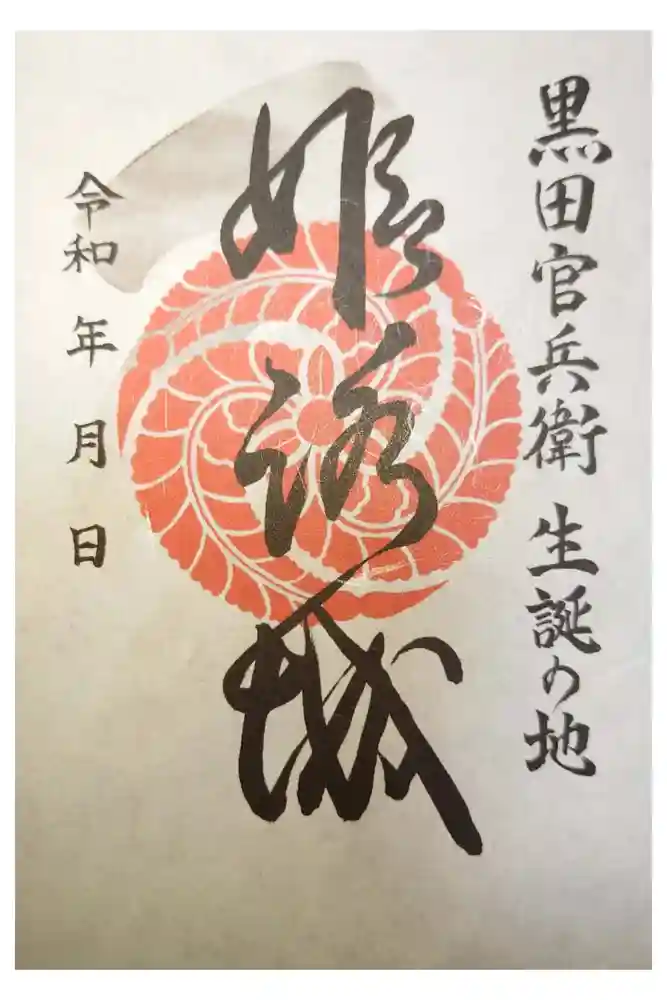 黒田官兵衛 生誕の地
姫路城
令和 年 月 日